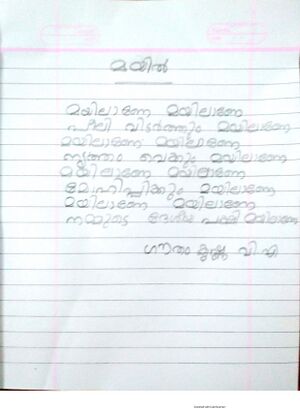 മയിൽ
മയിലാണേ മയിലാണേ
പീലി വിടർത്തും മയിലാണേ
മയിലാണേ മയിലാണേ
നൃത്തം വെക്കും മയിലാണേ
മയിലാണേ മയിലാണേ
മോഹിപ്പിക്കും മയിലാണേ
മയിലാണേ മയിലാണേ
നമ്മുടെ ദേശീയ പക്ഷി മയിലാണേ
ഗൗതം കൃഷ്ണ വി.എ